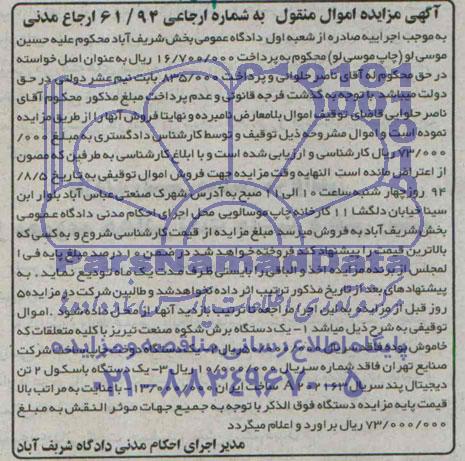 آگهی مزایده اموال منقول به شماره ارجاعی ۶۱/۹۴ ارجاع مدنی
به موجب اجراییه صادره از شعبه اول دادگاه عمومی بخش شریف آباد محکوم علیه حسین
موسی لو (چاپ موسی لو) محکوم به پرداخت ۱۶/۷۰۰/۰۰۰ ریال به عنوان اصل خواسته
در حق محکوم له آقای ناصر حلوانی و پرداخت ۸۳۵/۰۰۰ بابت نیم عشر دولتی در حق
دولت میباشد. با توجه به گذشت فرجه قانونی و عدم پرداخت مبلغ مذکور محکوم آقای
ناصر حلوایی تقاضای توقیف اموال بلامعارض نامبرده و نهایتا فروش آنها را از طریق مزایده
نموده است و اموال مشروحه ذیل توقیف و توسط کارشناس دادگستری به مبلغ ۰۰۰/
۷۳/۰۰۰ ریال کارشناسی و ارزیابی شده است و با ابلاغ کارشناسی به طرفین که مصون
از اعتراض مانده است النهایه وقت مزایده جهت فروش اموال توقیفی به تاریخ ۸/۵/
۹۴ روز چهار شنبه ساعت ۱۰ الی ۱۱ صبح به آدرس شهرک صنعتی عباس آباد بلوار ابن
سینا خیابان دلگشا ۱۱ کارخانه چاپ موسالویی محل اجرای احکام مدنی دادگاه عمومی
بخش شریف آباد به فروش میرسد مبلغ مزایده از قیمت کارشناسی شروع و به کسی که
بالاترین قیمت را پیشنهاد کند فروخته خواهد شد در ضمن ۱۰ درصد مبلغ پایه فی ا
لمجلس از برنده مزایده اخذ و الباقی را بایستی ظرف مدت یک ماه تودیع نماید. به
پیشنهادهای بعد از تاریخ مذکور ترتیب اثر داده نخواهد شد و طالبین شرکت در مزایده ۵
روز قبل از مزایده به این اجرا مراجعه تا ترتیب بازدید آنها از محل داده شود. اموال
توقیفی به شرح ذیل میباشد ۱- یک دستگاه برش شکوه صنعت تبریز با کلیه متعلقات که
خاموش بوده فاقد سریال ریال ۲- یک دستگاه دوخت چاپ ساخت شرکت
صنایع تهران فاقد شماره سریال ریال ۳- یک دستگاه باسکول ۲ تن
دیجیتال پند سریال ساخت ایران ریال با عنایت به مراتب بالا
قیمت پایه مزایده دستگاه فوق الذکر با توجه به جمیع جهات موثر النقش به مبلغ
۷۳/۰۰۰/۰۰۰ ریال برآورد و اعلام میگردد
مدیر اجرای احکام مدنی دادگاه شریف آباد
ParsNamadData
پایگاه اطلاع رسانی مناقصه و مزایده
۰۲۱-۸۸۳۴۹۶۷۰-۵